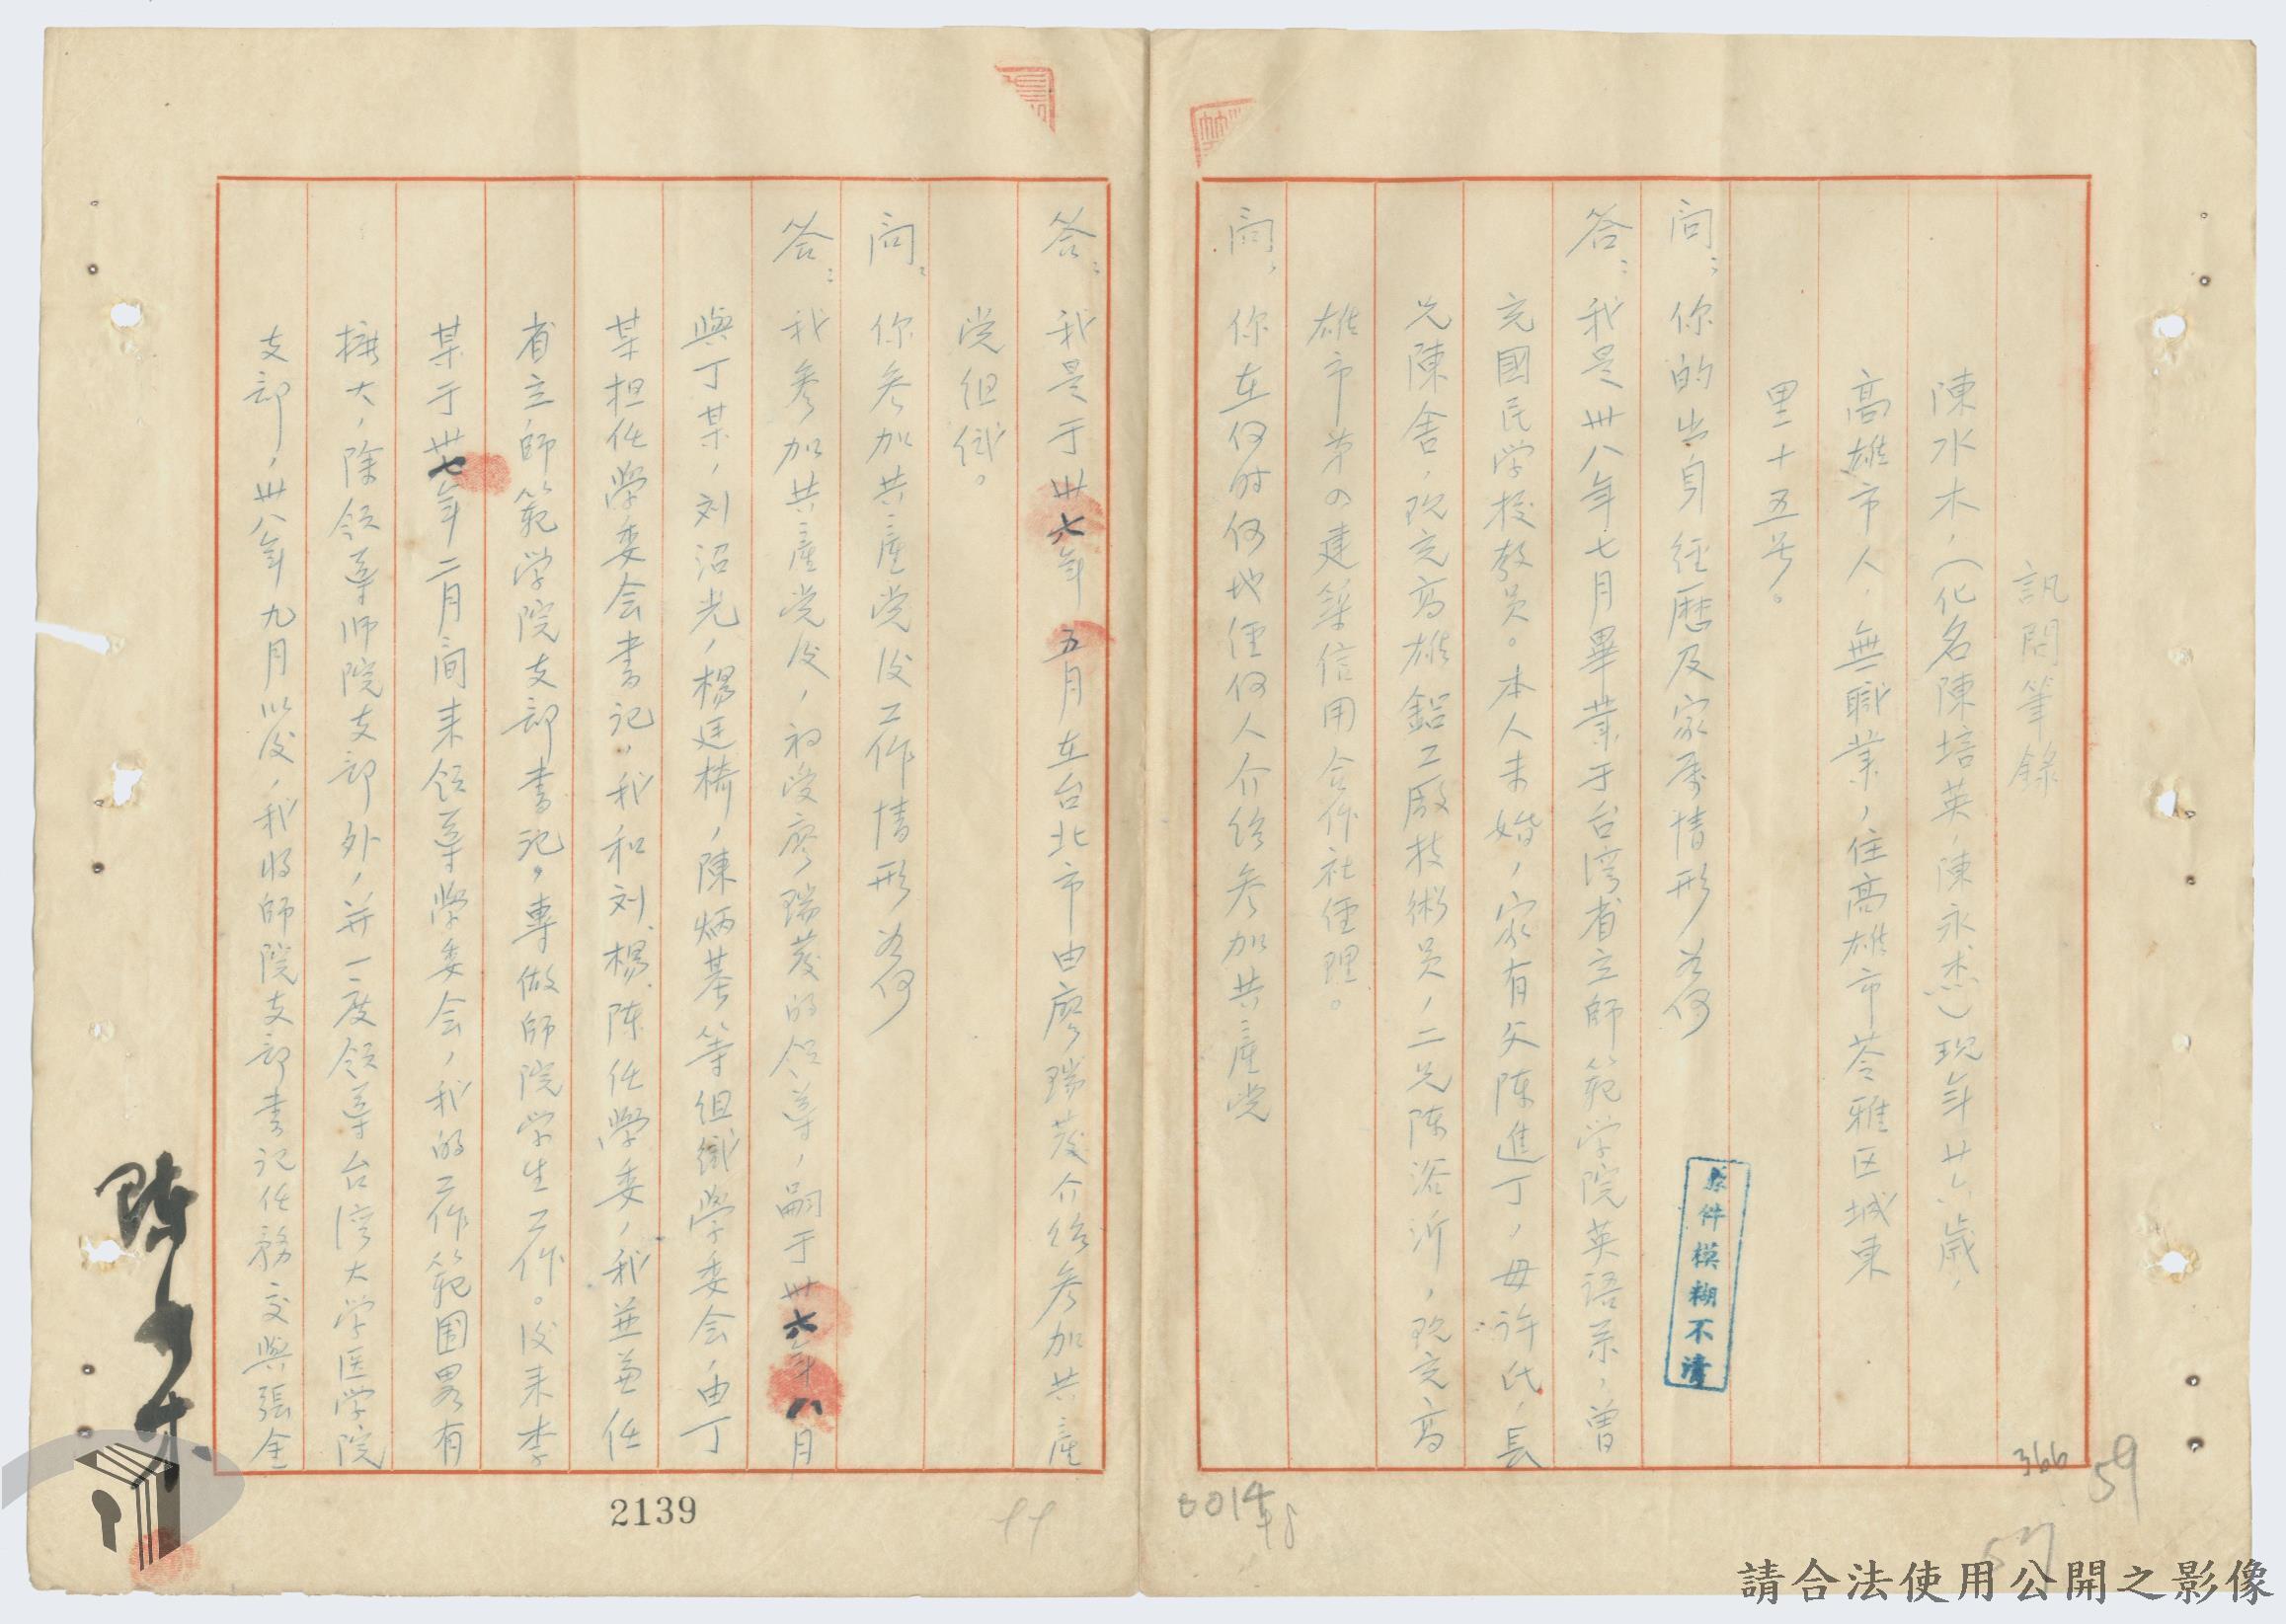 訊問筆錄
陳水木,(化名陳培英,陳永杰)現年廿六歲,
高雄市人,無職業,住高雄市苓雅区城東
里十五号。
问:你的出身经歷及家属情形为何
答:我是卅八年七月畢業于台湾省立師範学院英語系,曾
充國民学校教員。本人未婚,家有父陈進丁,母許氏,長
兄陳舍,现充高雄鋁工廠技術員,二兄陈浴沂,现充高
雄市第の建築信用合作社经理。
问:你在何时何地经何人介绍参加共産党
答:我是于卅六年五月在台北市由廖瑞发介绍参加共産
党组织。
问:你参加共産党後工作情形为何
答:我参加共産党後,初受廖瑞发的领導,嗣于卅六年八月
與丁某,刘沼光,楊廷椅,陳炳基等组織學委会,由丁
某担任學委会書记,我和刘.楊.陈任學委,我並兼任
省立師範学院支部書记,專做師院学生工作。後来李
某于卅七年二月间来领導學委会,我的工作範围畧有
擴大,除领導师院支部外,并一度领導台湾大学医学院
支部,卅八年九月以後,我将師院支部書记任務交與張全
陳水木
原件模糊不清
2139
6014
366
59
57
請合法使用公開之影像